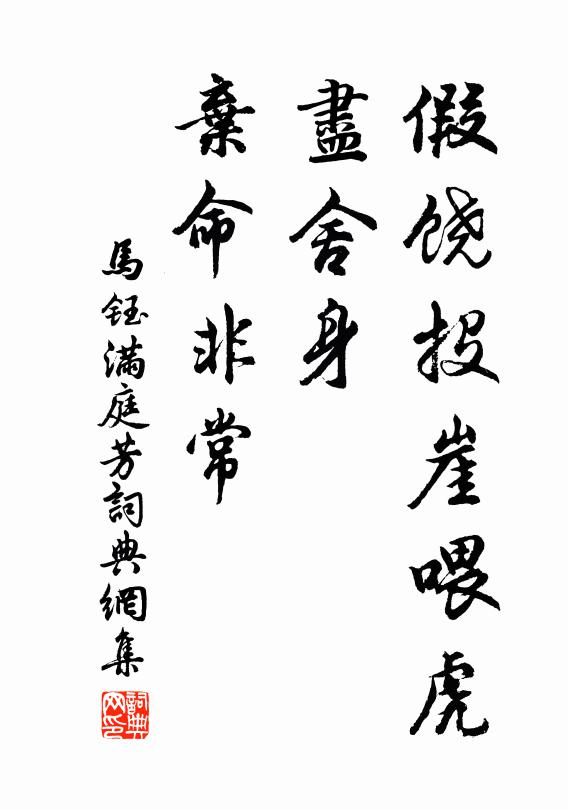 假饶投崖喂虎
盡舍身
棄命非常
馬鈺滿庭芳詞典網集
詞典網印